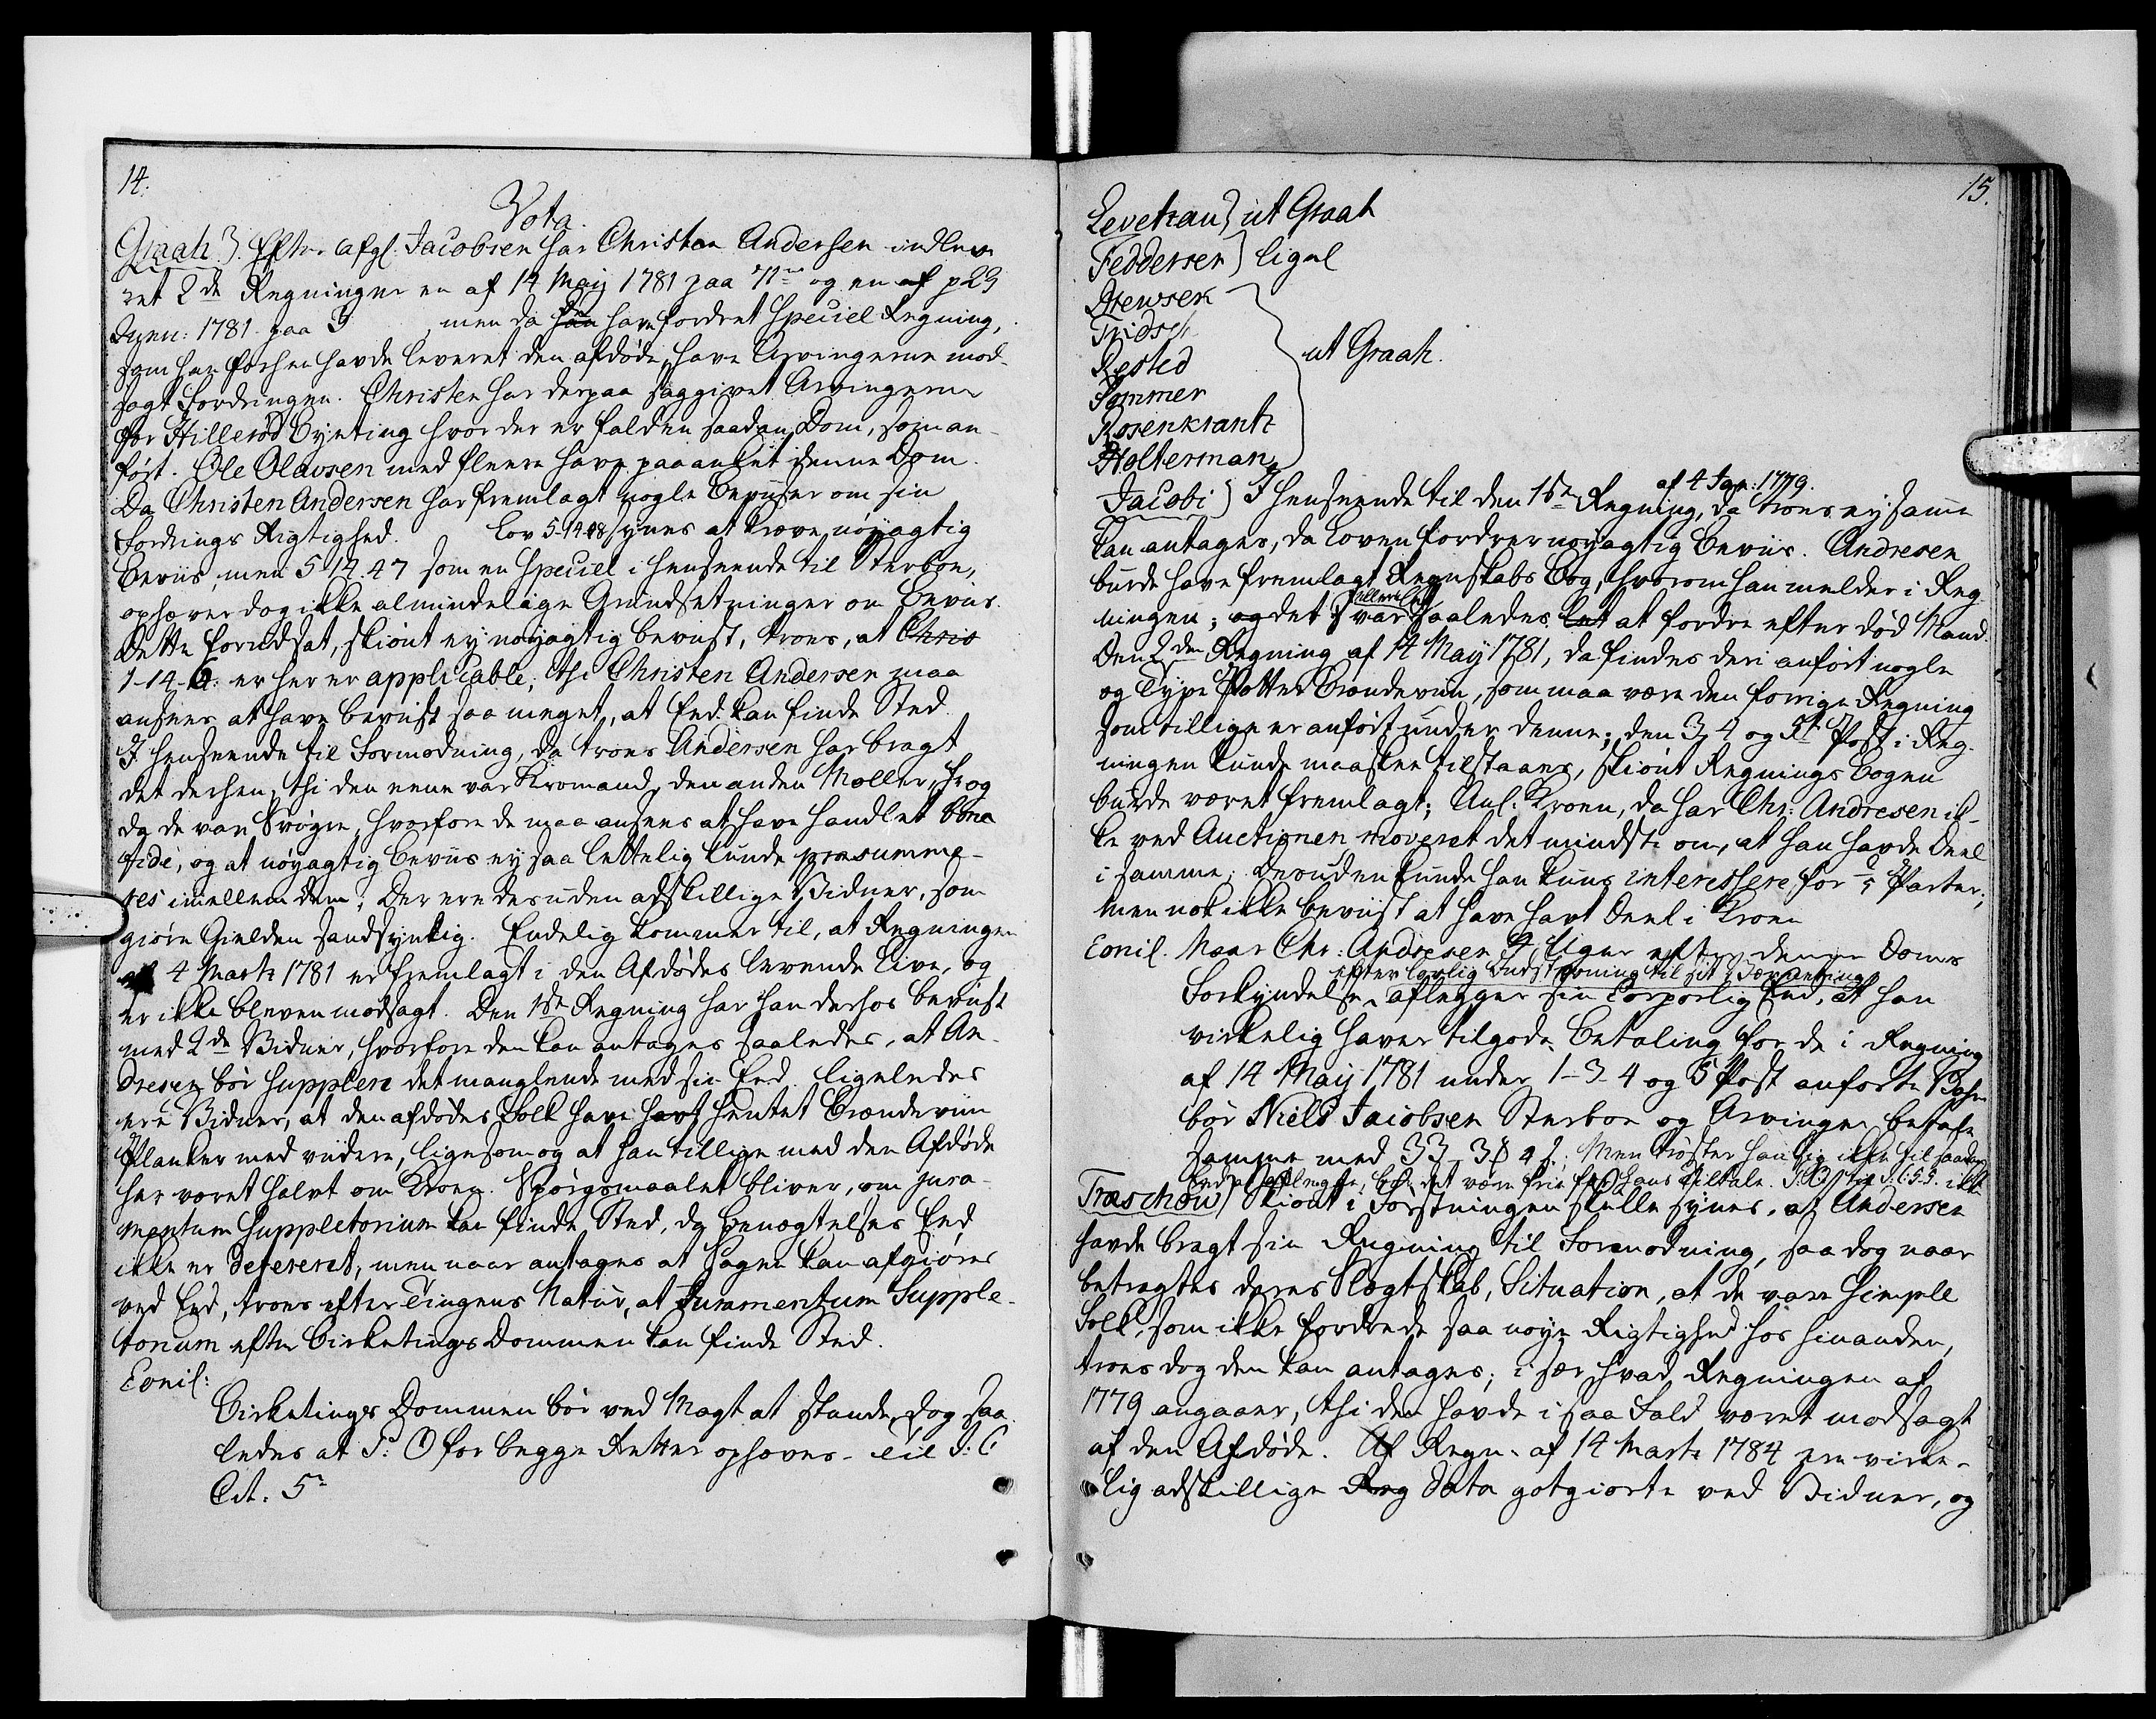 14.
Vota.
Graah). Efter afgl. Jacobsen har Christen Andersen indleve
ret 2de Regninger en af 14 Maij 1781 paa 71 og en af p 29
1781 paa men da han have fordret Speciel Regning,
som han forhen havde leveret den afdøde, have Arvingerne mod-
sagt Fordringen. Christen har derpaa saggivet Arvingerne
for Hillerød Byeting hvor der er falden saadan Dom, som an-
ført. Ole Olavsen med fleere have paaanket denne Dom.
Da Christen Andersen har fremlagt nogle Beviiser om sin
Fordrings Rigtighed. Lov 5-14-48 synes at kræve nøyagtig
Beviis, men 5-14.47 som en Speciel i Henseende til Sterboe,
ophæver dog ikke almindelige Grundsetninger om Beviis.
Dette forudsat, skiønt ey nøyagtig beviist, troes, at Chris
1-14-6. er her er applicable; thi Christen Andersen maa
ansees at have beviist saa meget, at Eed kan finde Sted.
I Henseende til Formodning, da troes Andersen har bragt
det derhen, thi den eene var Kromand, den anden Møller, og
da de var Svogre, hvorfore de maa ansees at have handlet bona
fide, og at nøyagtig Beviis ey saa lettelig kunde præsumme-
res imellem dem; Der ere desuden adskillige Vidner, som
giøre Gielden sandsynlig. Endelig kommer til, at Regningen
af 4 Marti 1781 er fremlagt i den Afdødes levende Live, og
er ikke bleven modsagt. Den 1ste Regning har han derhos beviist
med 2de Vidner, hvorfore den kan antages saaledes, at An-
dresen bør supplere det manglende med sin Eed. ligeledes
ere Vidner, at den afdødes Folk have havt hentet Brændeviin
Planker med videre, ligesom og at han tillige med den Afdøde
har været halvt om Kroen. Spørgsmaalet bliver, om jura-
mentum Suppletorium kan finde Sted, da Benægtelses Eed
ikke er defereret, men naar antages at Sagen kan afgiøres
ved Eed, troes efter Tingens Natur, at Juramentum Supple-
torium efter Birketings Dommen kan finde Sted.
Conil:
Birketings Dommen bør ved Magt at stande, dog saa
ledes at P: O for begge Retter ophæves. Til J: C
Cit. 5
15.
Levetzau) ut Graah
Feddersen) ligel
Drewsen
Fridsch
Rested
Sommer
Rosenkrantz
Holterman
ut Graah.
af 4 Jan: 1779.
Jacobi) I Henseende til den 1ste Regning, da troes ey samme
kan antages, da Loven fordrer nøyagtig Beviis. Andresen
burde have fremlagt Regnskabs Bog, hvorom han melder i Reg
ningen; og det var saaledes let at fordre efter død Mand.
Den 2den Regning af 14 May 1781, da findes deri anført nogle
og Tyve Potter Brændeviin, som maa være den forrige Regning
som tillige er anført under denne; den 3, 4 og 5te Post i Reg-
ningen kunde maaskee tilstaaes, skiønt Regnings Bogen
burde været fremlagt; Anl. Kroen, da har Chr: Andresen ik-
ke ved Auctionen moveret det mindste om, at han havde Deel
i samme; desuden kunde han kuns interessere for Parter;
men nok ikke beviist at have havt Deel i Kroen
Conil. Naar Chr: Andresen 4 Uger efter denne Doms
efter lovlig Indstevning til sit Værneting
Forkyndelse aflegger sin Corporlig Eed, at han
virkelig haver tilgode Betaling for de i Regning
af 14 Maij 1781 under 1-3-4 og 5 Post anførte
bør Niels Jacobsen Sterboe og Arvinger betale
samme med 33 3 ß 4 Men trøster han sig ikke til saadan
Eed at aflegge, bør det være frie for hans Tiltale.
Træschow) Skiønt i Førstningen skulle synes, at Andersen ikke
havde bragt sin Regning til Formodning, saa dog naar
betragtes deres Slægtskab, Situation, at de vare simple
Folk, som ikke fordrede saa nøye Rigtighed hos hinanden,
troes dog den kan antages; i sær hvad Regningen af
1779 angaaer, thi den havde i saa Fald været modsagt
af den Afdøde. Af Regn. af 14 Marti 1784 ere virke-
lig adskillige Reg data gotgiorte ved Vidner, og